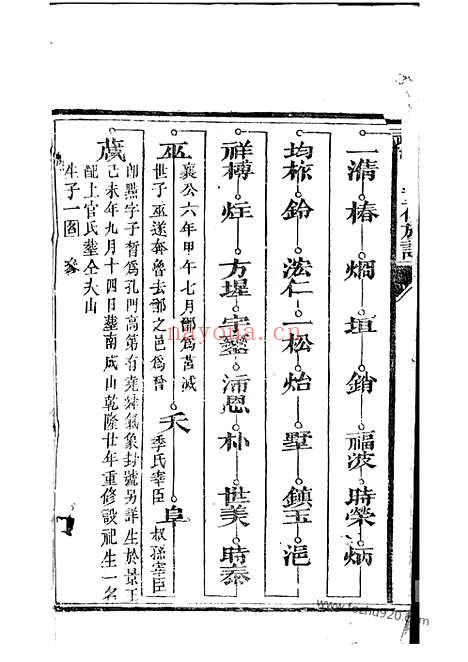 一清 椿 烱 垣 銷 福波 時榮 炳
均 旅 鈴 浤仁 一松 炲 墅 鎮玉 浥
祥樽 烓 方 鋈 沛恩 朴 世美 時泰
巫 襄公六年甲午七月鄫為莒滅
世子巫遂奔魯去鄫之邑為曾
夭 季氏宰臣
阜 叔孫宰臣
蒧 即點字子晳為孔門高第有 氣象封號另詳生於景王
己未年九月十四日塟南成山乾隆廿年重修設祀生一名
配上官氏塟仝夫山
生子一 參
ndyona.com
www.fozhu920.com